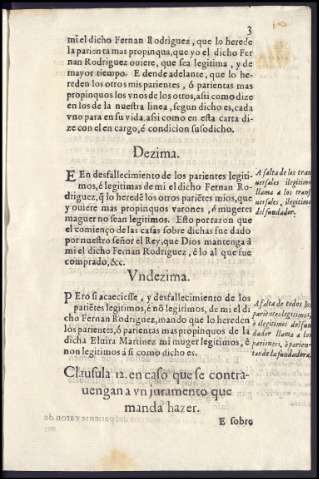 3
mi el dicho Fernan Rodriguez, que lo herede
la parienta mas propinqua, que yo el dicho Fer
nan Rodriguez ouiere, que sea legitima, y de
mayor tiempo. E dende adelante, que lo he-
reden los otros mis parientes, ó parientas mas
propinquos los vnos de los otros, asi como dize
en los de la nuestra linea, segun dicho es, cada
vno para en su vida, asi como en esta carta di-
ze con el en cargo, é condicion susodicho.
Dezima.
E En desfallecimiento de los parientes legiti-
mos, é legitimas de mi el dicho Fernan Ro-
driguez, q̃ lo heredẽ los otros pariẽtes mios, que
y ouiere mas propinquos varones, é mugeres
maguer no sean legitimos. Esto por razon que
el comienço de las casas sobre dichas fue dado
por nuestro señor el Rey, que Dios mantenga à
mi el dicho Fernan Rodriguez, è lo al que fue
comprado, &c.
A falta de los tran
uersales legitimos
llama a los trans
uersales, ilegitimos
del fundador.
Vndezima.
PEro si acaeciesse, y desfallecimiento de los
pariẽtes legitimos, é nõ legitimos, de mi el di
cho Fernan Rodriguez, mando que lo hereden
los parientes, ó parientas mas propinquos de la
dicha Eluira Martinez mi muger legitimos, é
non legitimos à si como dicho es.
A falta de todos los
pariẽtes legitimos,
ò ilegitimos del fun
dador llama a los
parientes, ò parien-
tas de la fundadora.
Clausula 12. en caso que se contra-
uengan a vn juramento que
manda hazer.
E sobre